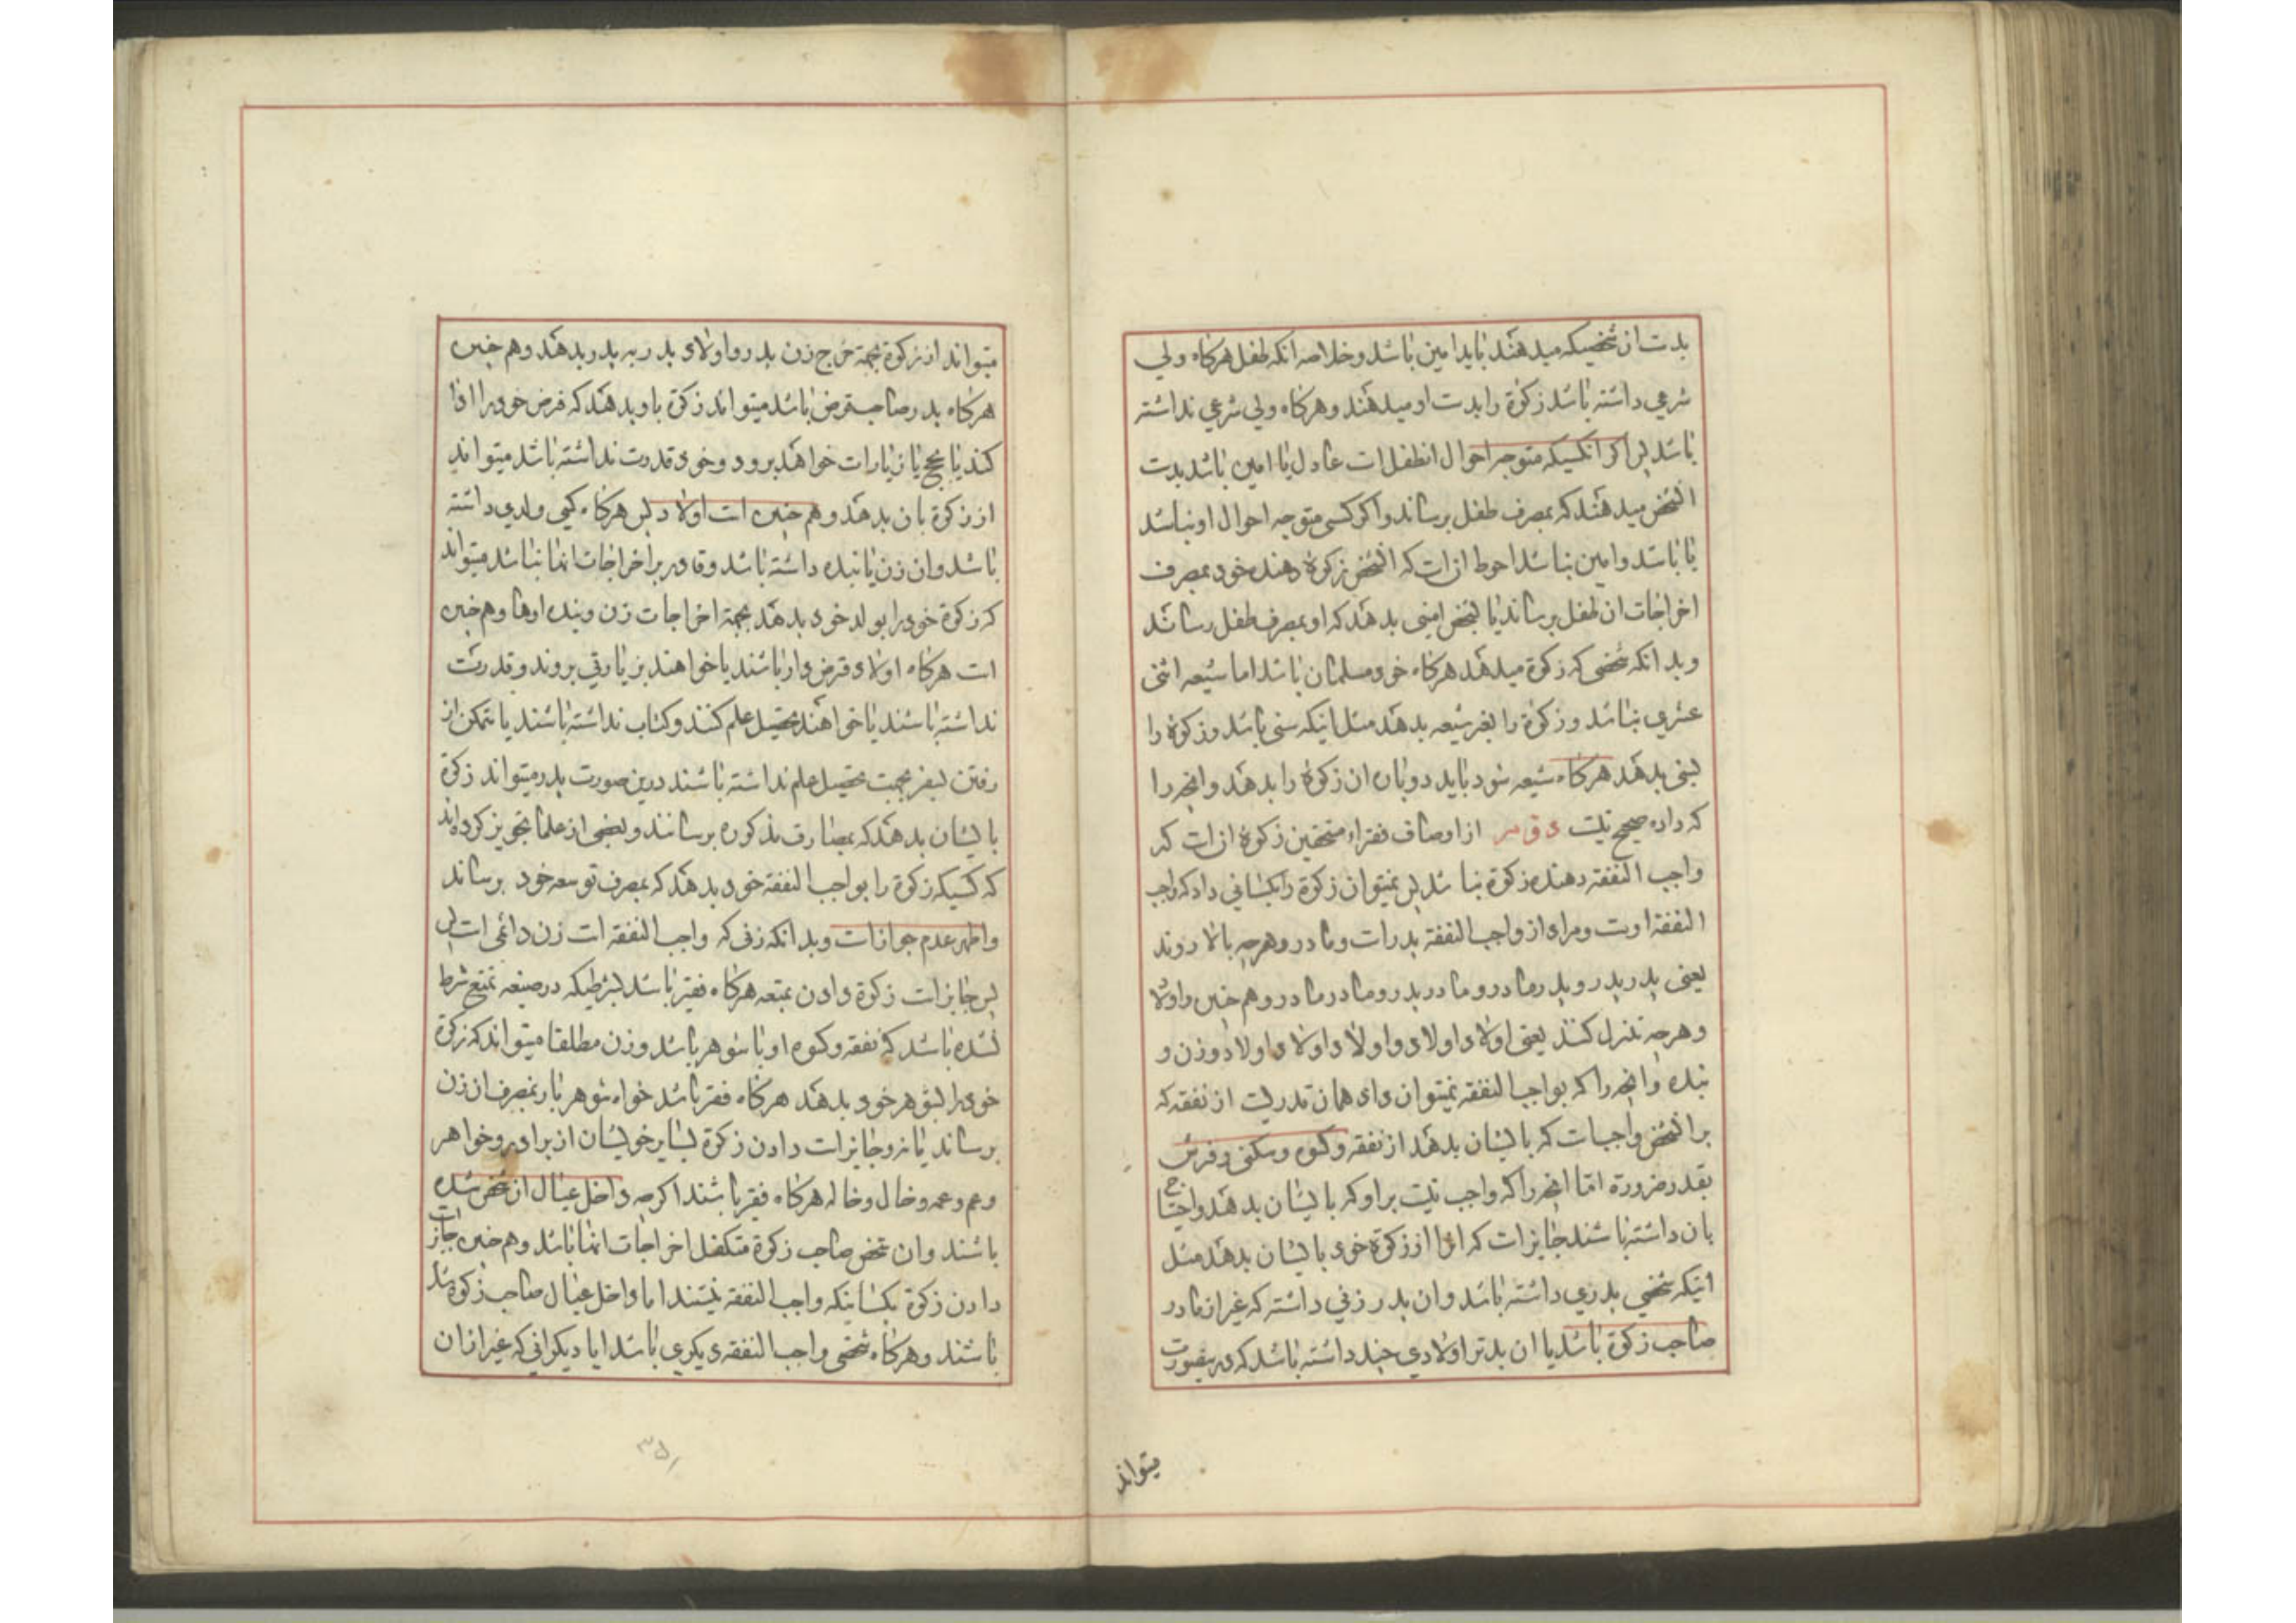 بدست ان شخصیکه میدهند باید امین باشد وخلاصه انکه طفل هرکاه ولی
شرعی داشته باشد زکوة را بدست او میدهند وهرکاه ولی شرعی نداشته
باشد پس اکر انکسیکه متوجه احوال انطفل است عادل یا امین باشد بدست
انشخص میدهند که بمصرف طفل برساند واکر کسی متوجه احوال او نباشد
یا باشد وامین نباشد احوط ان است که انشخص زکوة دهنده خود بمصرف
اخراجات ان طفل برساند یا بشخص امینی بدهد که او بمصرف طفل رساند
وبدانکه شخصی که زکوة میدهد هرکاه خود مسلمان باشد اما شیعه اثنی
عشری نباشد وزکوة را بغیر شیعه بدهد مثل اینکه سنی باشد وزکوة را
بسنی بدهد هرکاه شیعه شود باید دوباره ان زکوة را بدهد وانچه را
که داده صحیح نیست از اوصاف فقراء مستحقین زکوة ان است که
واجب النفقه دهنده زکوة نباشد پس نمیتوان زکوة را بکسانی داد که واجب
النفقه اوست ومراد از واجب النفقه پدر است ومادر وهرچه بالا روند
یعنی پدر پدر وپدر مادر ومادر پدر ومادر مادر وهم چنین واولاد
وهرچه تنزل کنند یعنی اولاد اولاد واولاد اولاد اولاد وزن و
بنده وانچه را که بواجب النفقه نمیتوان داد همان قدریست از نفقه که
بر انشخص واجب است که بایشان بدهد از نفقه وکسوه وسکنی وفرش
بقدر ضرورة اما انچه را که واجب نیست بر او که بایشان بدهد واحتیاج
بان داشته باشند جایز است که انرا از زکوة خود بایشان بدهد مثل
اینکه شخصی پدری داشته باشد وان پدر زنی داشته که غیر از مادر
صاحب زکوة باشد یا ان پدر اولادی چند داشته باشد که درینصورت
میتواند
میتواند از زکوة بجهة خرج زن پدر واولاد پدر به پدر بدهد وهم چنین
هرکاه پدر صاحب قرض باشد میتواند زکوة باو بدهد که قرض خود را ادا
کند یا بحج یا زیارات خواهد برود وخود قدرت نداشته باشد میتواند
از زکوة بان بدهد وهم چنین است اولاد پس هرکاه کسی ولدی داشته
باشد وان زن یا بنده داشته باشد وقادر بر اخراجات انها نباشد میتواند
که زکوة خود را بولد خود بدهد بجهة اخراجات زن وبنده اوها وهم چنین
است هرکاه اولاد قرض دار باشند یا خواهند بزیارتی بروند وقدرت
نداشته باشند یا خواهند تحصیل علم کنند وکتاب نداشته باشند یا تمکن از
رفتن بسفر بجهت تحصیل علم نداشته باشند درین صورت پدر میتواند زکوة
بایشان بدهد که بمصارف مذکوره برسانند وبعضی از علما تجویز کرده اند
که کسیکه زکوة را بواجب النفقه خود بدهد که بمصرف توسعه خود برساند
واظهر عدم جواز است وبدانکه زنی که واجب النفقه است زن دائمی است پس
پس جایز است زکوة دادن بمتعه هرکاه فقیر باشد بشرطیکه در صیغه تمتع شرط
نشده باشد که نفقه وکسوه او با شوهر باشد وزن مطلقا میتواند که زکوة
خود را بشوهر خود بدهد هرکاه فقیر باشد خواه شوهر باز بمصرف ان زن
برساند یا نه وجایز است دادن زکوة بسایر خویشان از برادر وخواهر
وعم وعمه وخال وخاله هرکاه فقیر باشند اکرچه داخل عیال ان شخص شده
باشند وان شخص صاحب زکوة متکفل اخراجات انها باشد وهم چنین جایز است
دادن زکوة بکسانیکه واجب النفقه نیستند اما داخل عیال صاحب زکوة شده
باشند وهرکاه شخصی واجب النفقه دیکری باشد ایا دیکرانی که غیر از ان